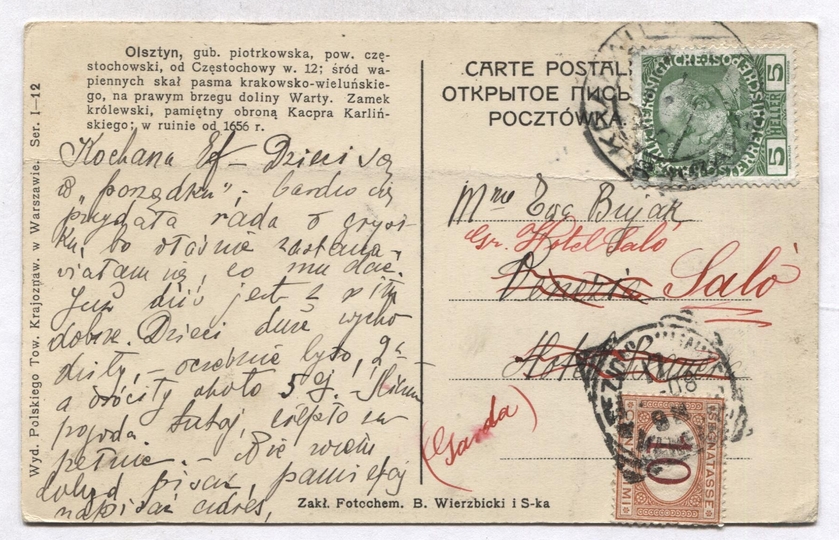 Olsztyn, gub. piotrkowska, pow. czę-
stochowski, od Częstochowy w. 12; śród wa-
piennych skał pasma krakowsko-wieluńskie-
go, na prawym brzegu doliny Warty. Zamek
królewski, pamiętny obroną Kacpra Karliń-
skiego; w ruinie od 1656 r.
Wyd. Polskiego Tow. Krajoznaw. w Warszawie. Ser. I—12
CARTE POSTAL
ОТКРЫТОЕ ПИСЬ
POCZTÓWKA.
5
5
HELLER
Kochana Dzieci są
w „porządku", – bardzo się
przydała rada o grysi-
ku, bo właśnie zastana-
wiałam się, co mu dać.
Już dziś jest z nim
dobrze. Dzieci dużo wycho
dziły, –
a wróciły około 5 ej.
pogoda tutaj, ciepło zu
pełnie. – Nie wiem
dokąd pisać, pamiętaj
napisać adres,
Mme Ewa Bujak
Gr. Hotel Salò
Venezia Salò
Hotel
(Garda)
SEGNATASSE
10
Zakł. Fotochem. B. Wierzbicki i S-ka